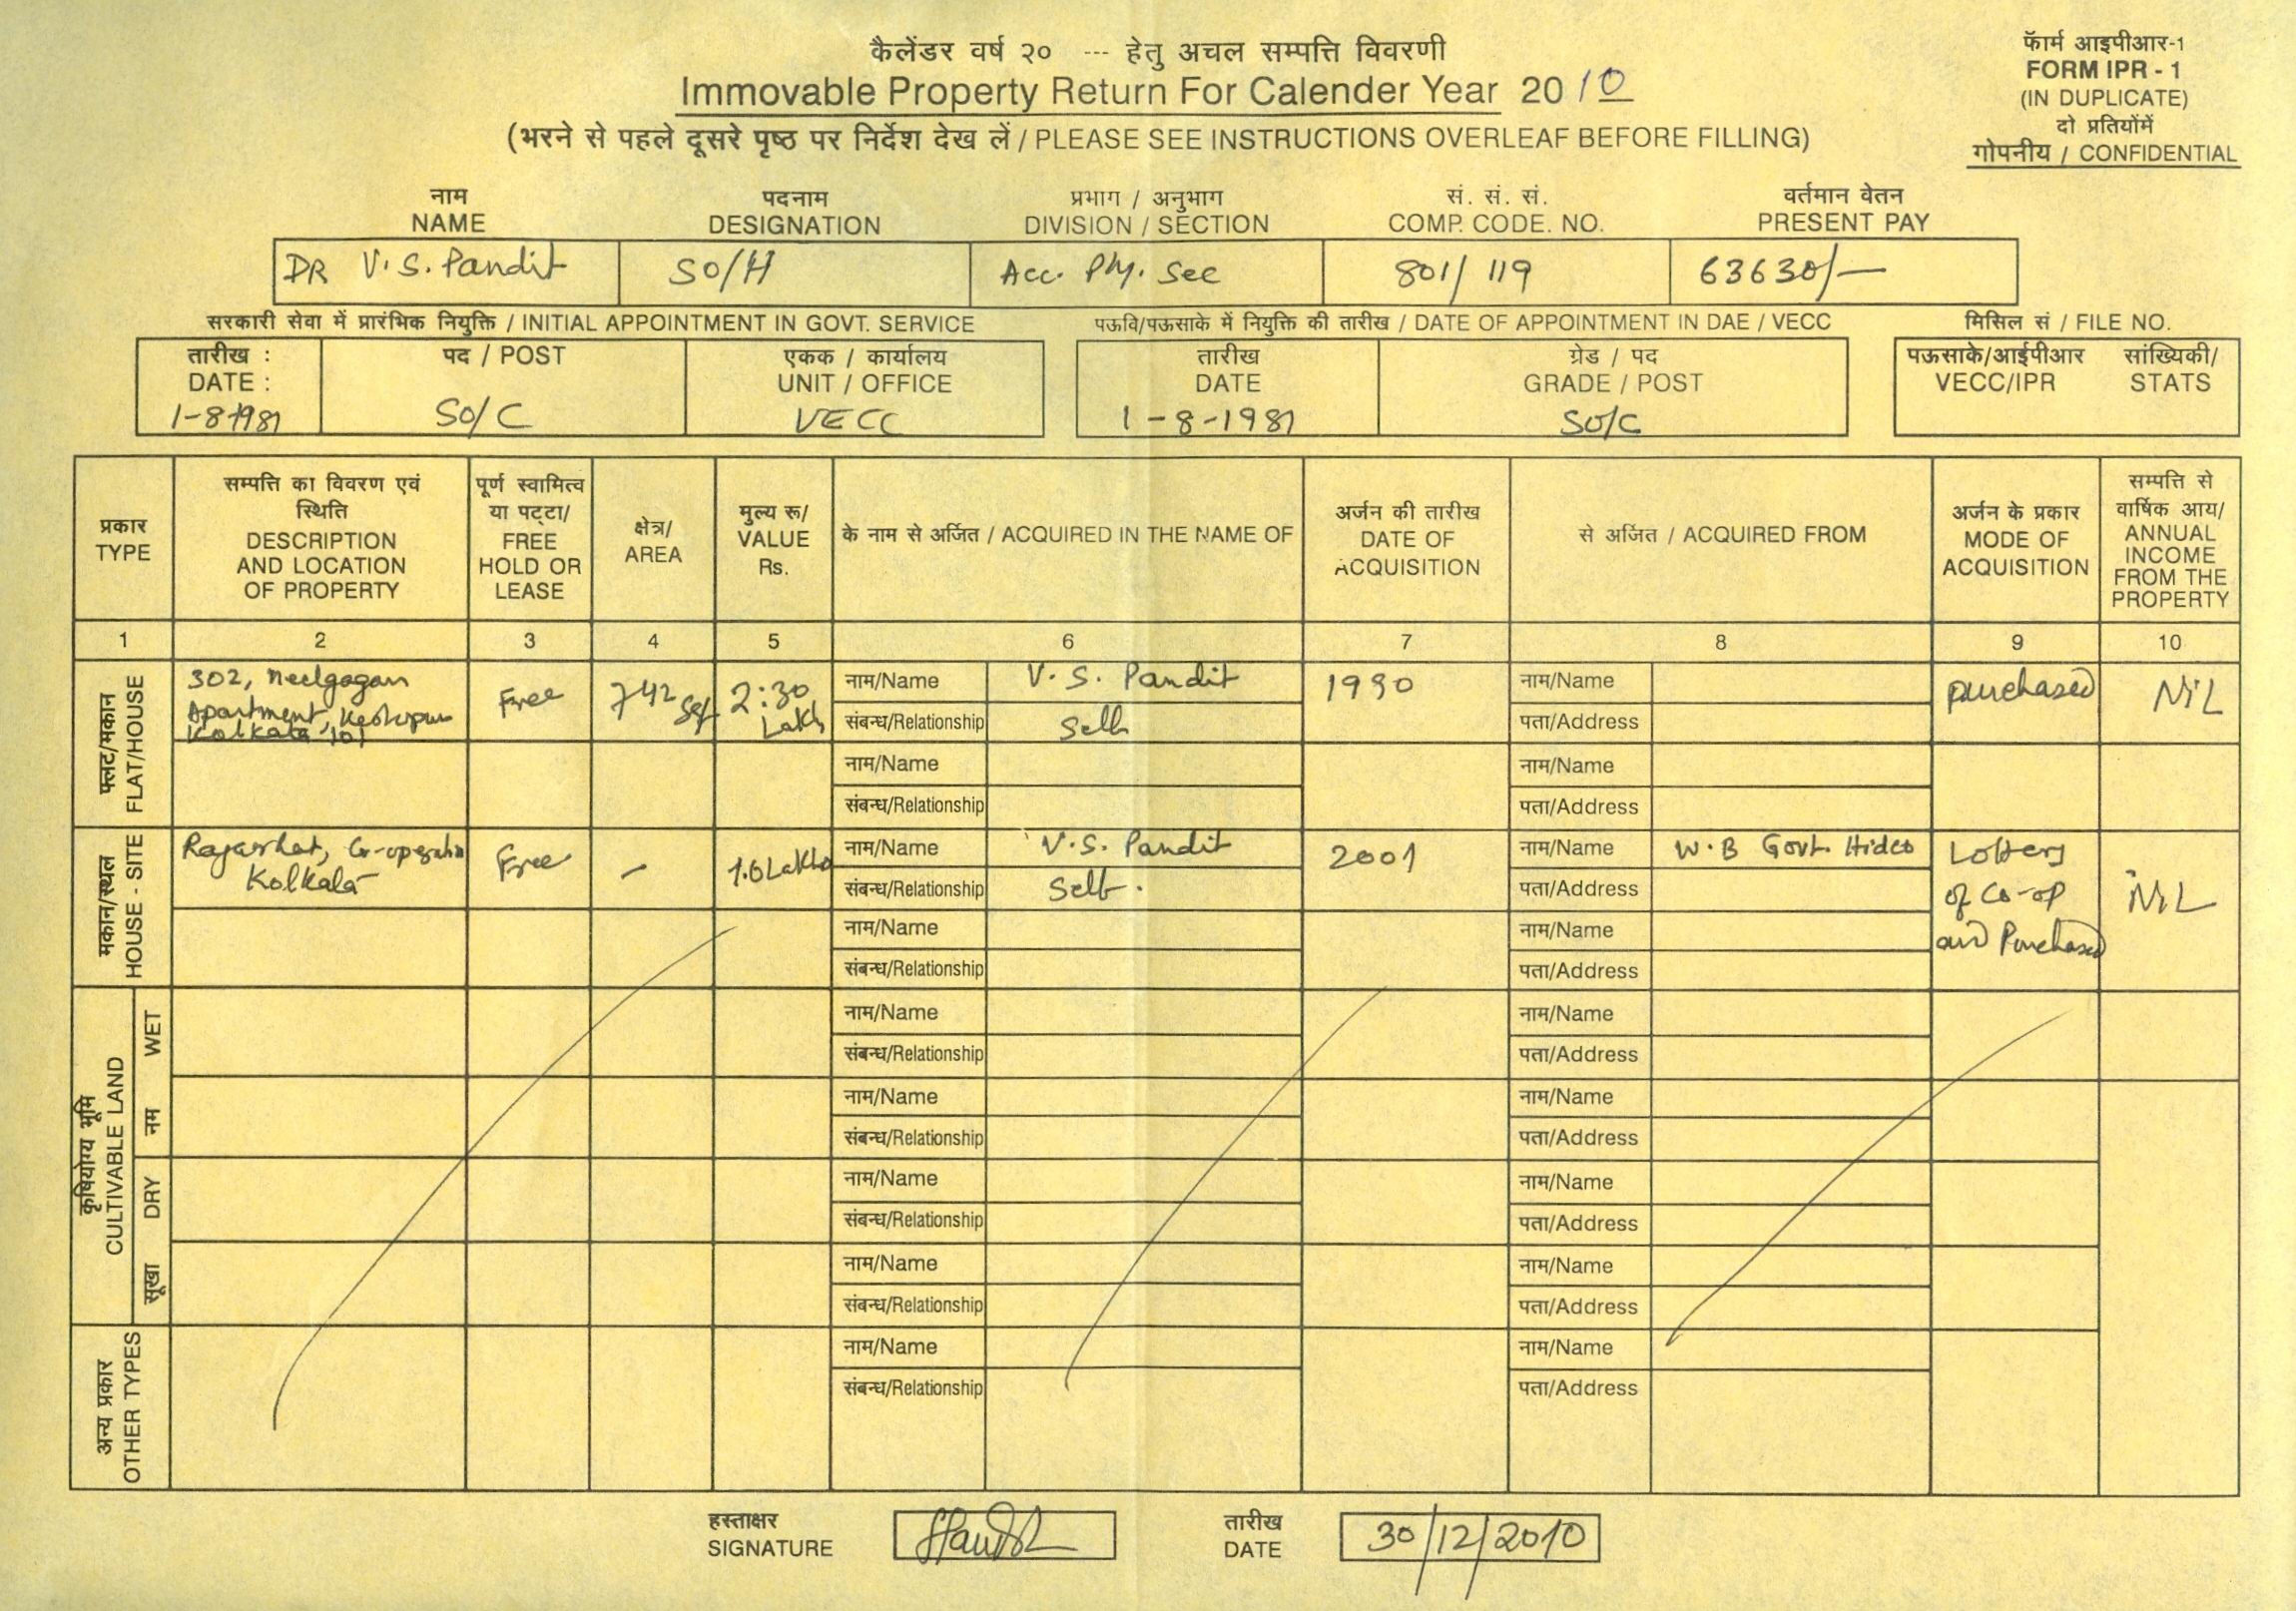 कैलेंडर वर्ष २० --- हेतु अचल सम्पत्ति विवरणी
Immovable Property Return For Calender Year 2010
(भरने से पहले दूसरे पृष्ठ पर निर्देश देख लें / PLEASE SEE INSTRUCTIONS OVERLEAF BEFORE FILLING)
फॅार्म आइपीआर-1
FORM IPR - 1
(IN DUPLICATE)
दो प्रतियोंमें
गोपनीय / CONFIDENTIAL
नाम पदनाम प्रभाग / अनुभाग सं. सं. सं. वर्तमान वेतन
NAME DESIGNATION DIVISION / SECTION COMP. CODE. NO. PRESENT PAY
DR V.S. Pandit SO/H Acc. Phy. Sec 801/119 63630/-
सरकारी सेवा में प्रारंभिक नियुक्ति / INITIAL APPOINTMENT IN GOVT. SERVICE पऊवि/पऊसाके में नियुक्ति की तारीख / DATE OF APPOINTMENT IN DAE / VECC मिसिल सं / FILE NO.
तारीख : पद / POST एकक / कार्यालय तारीख ग्रेड / पद पऊसाके/आईपीआर सांख्यिकी/
DATE : UNIT / OFFICE DATE GRADE / POST VECC/IPR STATS
1-8-1981 SO/C VECC 1-8-1981 SO/C
प्रकार
TYPE
सम्पत्ति का विवरण एवं
स्थिति
DESCRIPTION
AND LOCATION
OF PROPERTY
पूर्ण स्वामित्व
या पट्टा/
FREE
HOLD OR
LEASE
क्षेत्र/
AREA
मुल्य रू/
VALUE
Rs.
के नाम से अर्जित / ACQUIRED IN THE NAME OF
अर्जन की तारीख
DATE OF
ACQUISITION
से अर्जित / ACQUIRED FROM
अर्जन के प्रकार
MODE OF
ACQUISITION
सम्पत्ति से
वार्षिक आय/
ANNUAL
INCOME
FROM THE
PROPERTY
1 2 3 4 5 6 7 8 9 10
फ्लट/मकान
FLAT/HOUSE
302, Neelgagan
Apartment, Kestopur
Kolkata 101
Free
742 Sqf
2:30
Lakh
नाम/Name V. S. Pandit
संबन्ध/Relationship Self
1990
नाम/Name
पता/Address
purchased
NIL
नाम/Name नाम/Name
संबन्ध/Relationship पता/Address
मकान/स्थल
HOUSE - SITE
Rajarhat, Co-operative
Kolkata
Free
-
1.6 Lakhs
नाम/Name V.S. Pandit
संबन्ध/Relationship Self.
2001
नाम/Name W.B Govt. Hidco
पता/Address
Lottery
of Co-op
and Purchased
NIL
नाम/Name नाम/Name
संबन्ध/Relationship पता/Address
कृषियोग्य भूमि
CULTIVABLE LAND
नम WET
नाम/Name नाम/Name
संबन्ध/Relationship पता/Address
नाम/Name नाम/Name
संबन्ध/Relationship पता/Address
सूखा DRY
नाम/Name नाम/Name
संबन्ध/Relationship पता/Address
नाम/Name नाम/Name
संबन्ध/Relationship पता/Address
अन्य प्रकार
OTHER TYPES
नाम/Name नाम/Name
संबन्ध/Relationship पता/Address
हस्ताक्षर तारीख
SIGNATURE DATE 30/12/2010